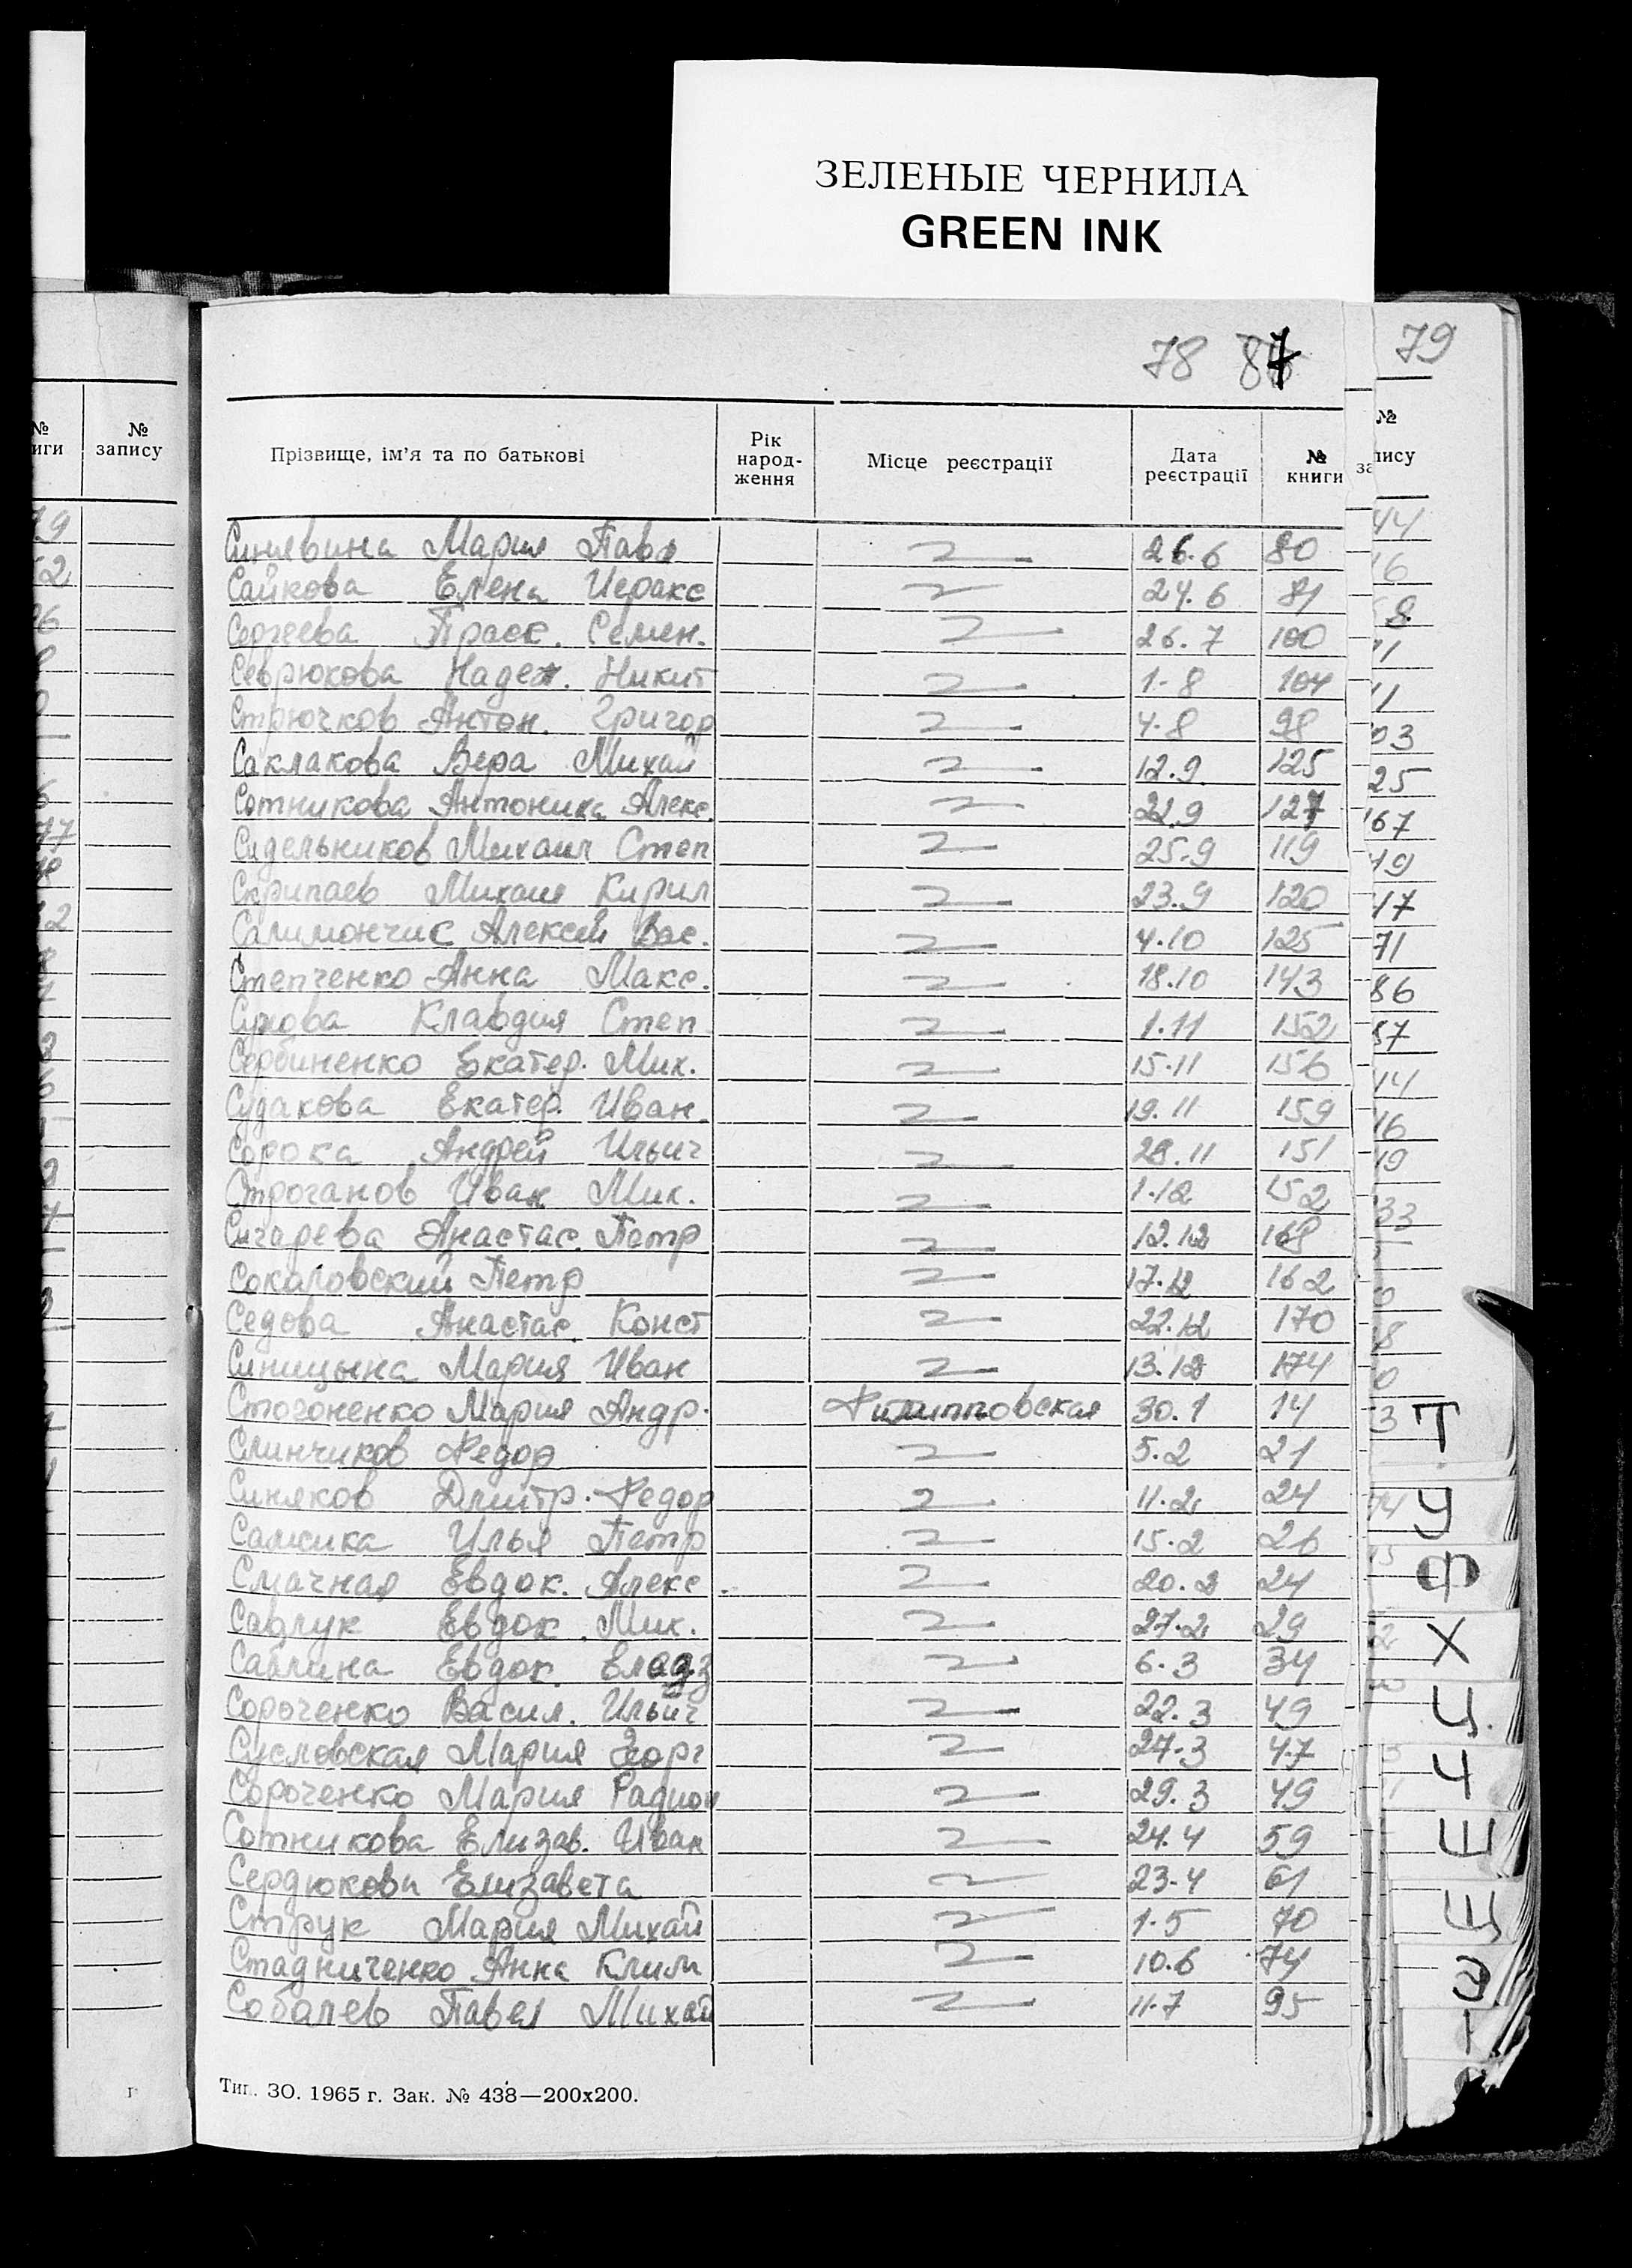 ЗЕЛЕНЫЕ ЧЕРНИЛА
GREEN INK
78 87
79
№ запису
Прізвище, ім'я та по батькові Рік народ-ження Місце реєстрації Дата реєстрації № книги
Синявина Мария Павл 26.6 80
Сайкова Елена Иеракс 24.6 81
Сергеева Праск. Семен. 26.7 100
Севрюкова Надеж. Никит 1-8 104
Стрючков Антон. Григор 4-8 98
Саклакова Вера Михай 12.9 125
Сотникова Антонина Алекс. 22.9 127
Сидельников Михаил Степ 25.9 119
Скрипаев Михаил Кирил 23.9 120
Салимончик Алексей Вас. 4.10 125
Степченко Анна Макс. 18.10 143
Сухова Клавдия Степ. 1.11 152
Сербиненко Екатер. Мих. 15.11 156
Судакова Екатер. Иван. 19.11 159
Сорока Андрей Ильич 28.11 151
Строганов Иван Мих. 1.12 152
Сичарева Анастас. Петр 12.12 168
Сокаловский Петр 17.12 162
Седова Анастас. Конст 22.12 170
Синицына Мария Иван 13.12 174
Стогоненко Мария Андр. Филипповская 30.1 14
Слинчиков Федор 5.2 21
Синяков Дмитр. Федор 11.2 24
Самсика Илья Петр 15.2 26
Смачная Евдок. Алекс. 20.2 24
Савлук Евдок. Мих. 27.2 29
Саблина Евдок. 6.3 34
Сороченко Васил. Ильич 22.3 49
Сусловская Мария Георг 27.3 47
Сороченко Мария Радион 29.3 49
Сотникова Елизав. Иван 24.4 59
Сердюкова Елизавета 23-4 61
Струк Мария Михай 1.5 70
Стадниченко Анна Клим 10.6 74
Соболев Павел Михай 11.7 95
Тип. ЗО. 1965 г. Зак. № 438—200х200.
Т
У
Ф
Х
Ц
Ч
Ш
Щ
Э